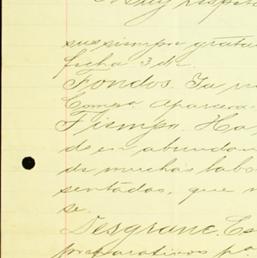 suya siempre grata
fecha 3 de
Fondos. Ya
Compo. Aparcera
Tiempo. Ha
de en abundan
de muchas labo
sentadas, que n
se.
Desgrane. Es
preparativos pa